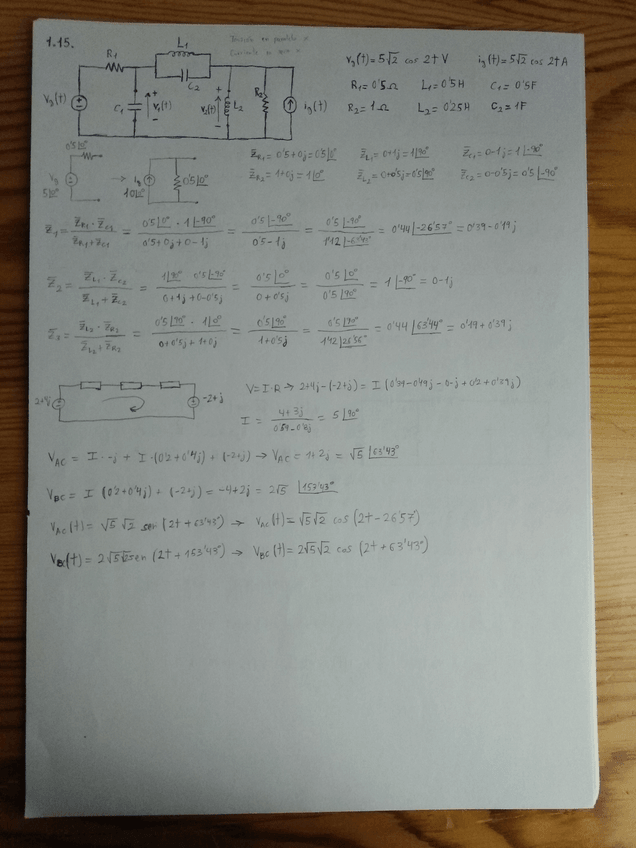 1.15.
R1 L1 C2 C1 L2 R2
Vg(t) V1(t) V2(t) ig(t)
Vg(t)= 5√2 cos 2t V ig(t)= 5√2 cos 2t A
R1= 0'5Ω L1= 0'5H C1= 0'5F
R2= 1Ω L2= 0'25H C2= 1F
Z̄R1= 0'5+0j= 0'5|0° Z̄L1= 0+1j= 1|90° Z̄C1= 0-1j= 1|-90°
Z̄R2= 1+0j= 1|0° Z̄L2= 0+0'5j= 0'5|90° Z̄C2= 0-0'5j= 0'5|-90°
Z̄1= Z̄R1·Z̄C1 / Z̄R1+Z̄C1 = 0'5|0° · 1|-90° / 0'5+0j+0-1j = 0'5|-90° / 0'5-1j = 0'5|-90° / = 0'44|-26'57° = 0'39-0'19j
Z̄2= Z̄L1·Z̄C2 / Z̄L1+Z̄C2 = 1|90° 0'5|-90° / 0+1j+0-0'5j = 0'5|0° / 0+0'5j = 0'5|0° / 0'5|90° = 1|-90° = 0-1j
Z̄3= Z̄L2·Z̄R2 / Z̄L2+Z̄R2 = 0'5|90° · 1|0° / 0+0'5j+1+0j = 0'5|90° / 1+0'5j = 0'5|90° / = 0'44|63'44° = 0'19+0'39j
V=I·R → 2+4j-(-2+j) =
-2+j
I = 4+3j / = 5|90°
VAC = I·-j + I·(0'2+0'4j) + (-2+j) → VAC = 1+2j = √5 |63'43°
VBC = I (0'2+0'4j) + (-2+j) = -4+2j = 2√5 |153'43°
VAC(t)= √5 √2 sen (2t+63'43°) → VAC(t)= √5√2 cos (2t-26'57°)
VBC(t)= 2√5√2 sen (2t+153'43°) → VBC(t)= 2√5√2 cos (2t+63'43°)